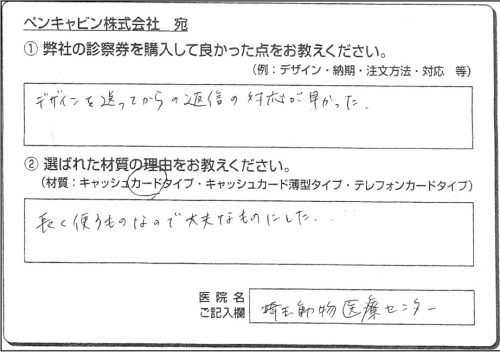 ペンキャビン株式会社 宛
① 弊社の診察券を購入して良かった点をお教えください。
(例：デザイン・納期・注文方法・対応 等)
デザインを送ってからの返信の対応が早かった.
② 選ばれた材質の理由をお教えください。
(材質：キャッシュカードタイプ・キャッシュカード薄型タイプ・テレフォンカードタイプ)
長く使うものなので大丈夫なものにした.
医院名
ご記入欄
埼玉動物医療センター